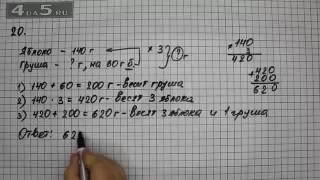 4DA5.RU
20.
Яблоко - 140 г
Груша - ? г, на 60 г б.
* 3 ? г
1) 140 + 60 = 200 г - весит груша
2) 140 · 3 = 420 г - весят 3 яблока
3) 420 + 200 = 620 г - весят 3 яблока и 1 груша
Ответ: 62
× 140
3
420
+ 420
200
620